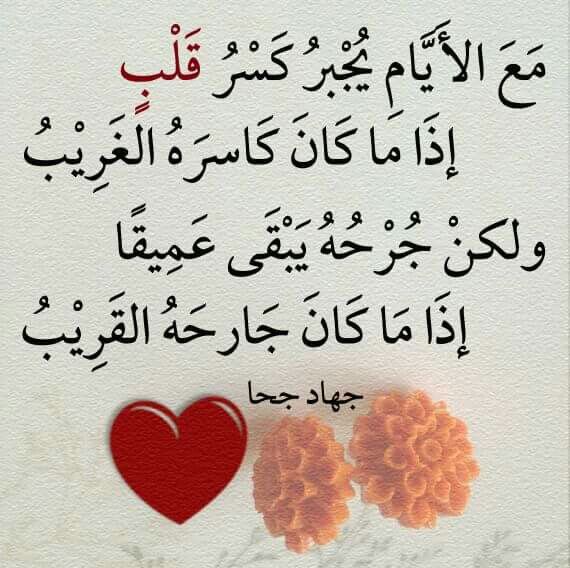 مَعَ الأَيَّامِ يُجْبرُ كَسْرُ قَلْبٍ
إذَا مَا كَانَ كَاسرَهُ الغَرِيْبُ
ولكنْ جُرْحُهُ يَبْقَى عَمِيقًا
إذَا مَا كَانَ جَارحَهُ القَرِيْبُ
جهاد جحا